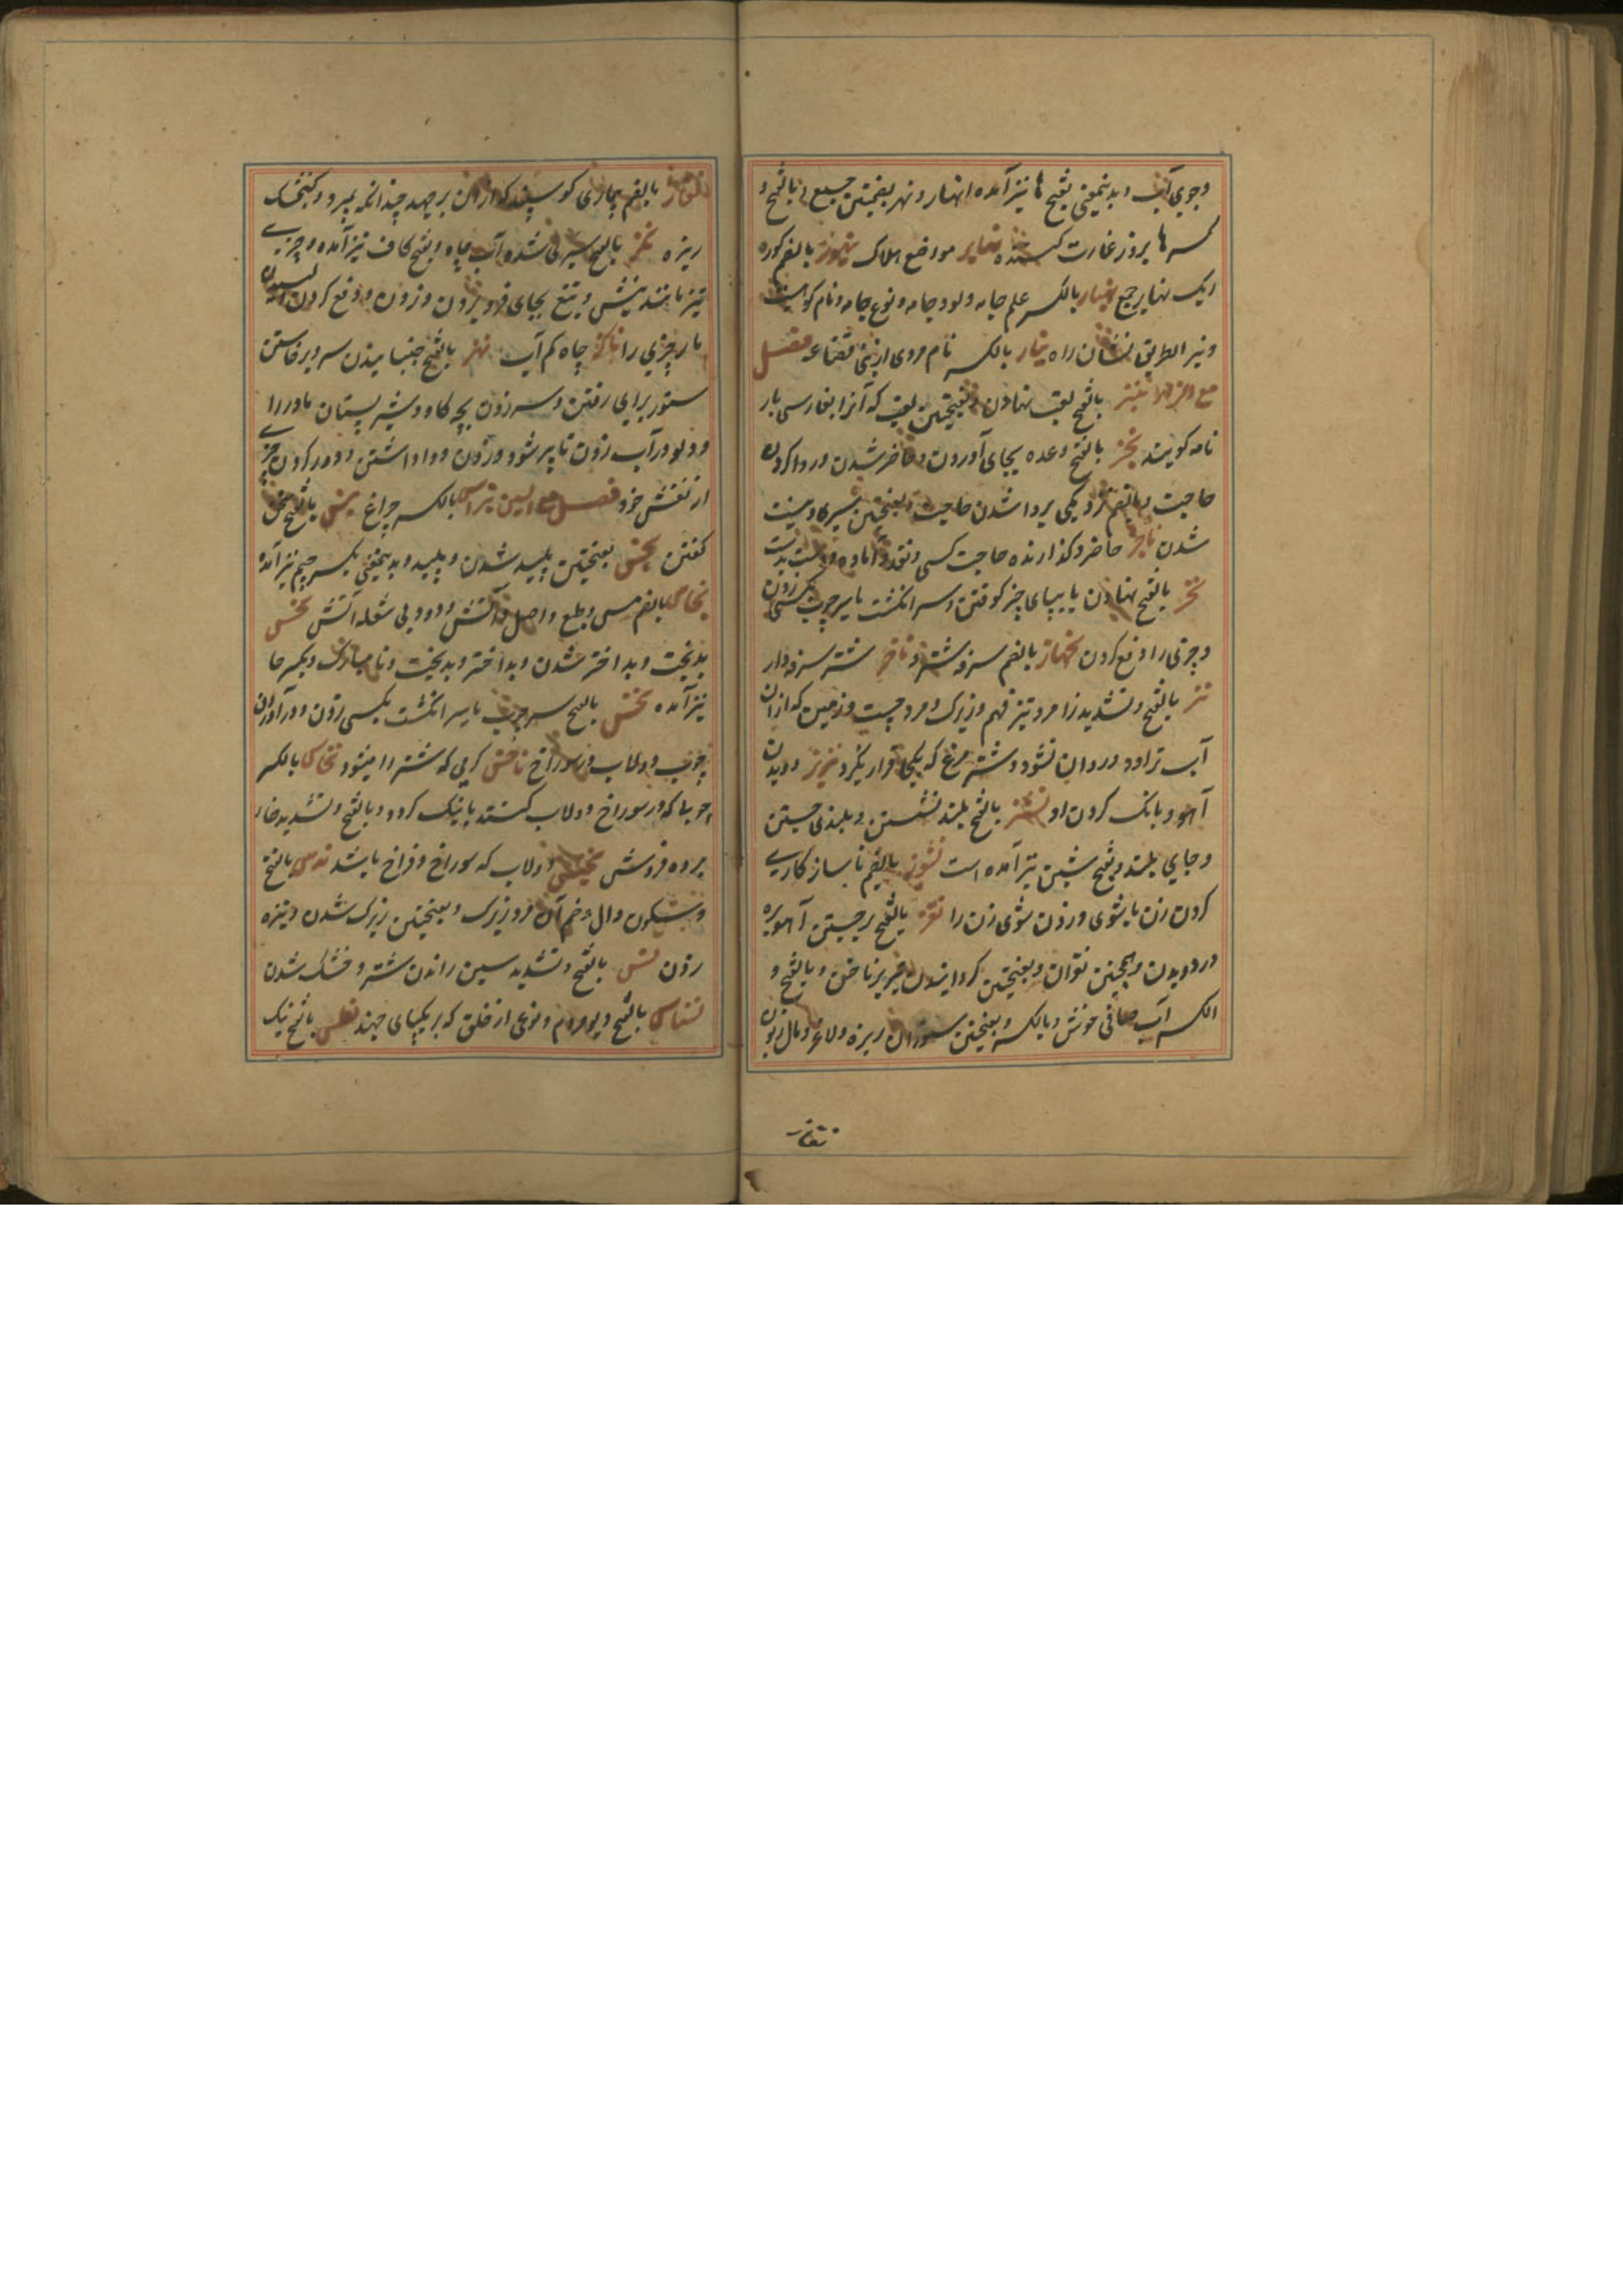 وجوی آب و بدینمعنی بفتح ها نیز آمده انهار و نهر بضمتین جمع نهر بالفتح و
کسر ها بروز غارت کننده نهابر مواضع هلاک بالضم کوره
ریک نهابر جمع نیار بالکسر علم جامه و پود جامه و نوع جامه و نام کوهیست
و نیر الطریق نشان راه نیار بالکسر نام مردی از بنی قضاعه فصل
مع الزاء نبز بالفتح لقب نهادن و بفتحتین لقب که آنرا بفارسی بار
نامه گویند نجز بالفتح وعده بجای آوردن و حاضر شدن و روا کردن
حاجت و بالضم نزدیکی بروا شدن حاجت و بفتحتین سپری و نیست
شدن ناجز حاضر و گذارنده حاجت کسی و نقد و آماده و دست بدست
نخز بالفتح نهادن با بپای چیز کوفتن و سر انگشت یا سر چوب بکسی زدن
و چیزی را دفع کردن نحاز بالضم سرفه شتر و ناحز شتر سرفه دار
نز بالفتح و تشدید زا مرد تیز فهم و زیرک و مرد چست و زمین که از آن
آب تراود و روان نشود و شتر مرغ که یکجا قرار نگیرد نزیز دویدن
آهو و بانک کردن او نشز بالفتح بلند نشستن و بلندی جستن
و جای بلند و بفتح شین نیز آمده است نشوز بالضم ناسازکاری
کردن زن با شوی و زدن شوی زن را نقز بالفتح برجستن آهوبره
در دویدن و همچنین نقزان و بفتحتین گردانیدن تیر بر ناخن و بالفتح و
الکسر آب صافی خوش و بالکسر و بفتحتین ستوران ریزه و لاغر و مال زبون
نقاز
نقاز بالضم بیماری گوسپند که از آن برجهد چندانکه بمیرد و گنجشک
ریزه نکز بالفتح سپری شدن آب چاه و بفتح کاف نیز آمده و چیزی
تیز مانند نیش و تیغ بجای فرو بردن و زدن و دفع کردن
مار چیزی را ناکز چاه کم آب نهز بالفتح جنبانیدن سر و برخاستن
ستور برای رفتن و سر زدن بچه گاو و شیر پستان مادر را
و دلو در آب زدن تا پر شود و زدن و واداشتن و دور کردن چیزی
از نفس خود فصل مع السین نبراس بالکسر چراغ نبس بالفتح سخن
گفتن نجس بفتحتین پلید شدن و پلید و بدینمعنی بکسر جیم نیز آمده
نحاس بالضم مس و طبع و اصل و آتش و دود بی شعله آتش نحس
بدبخت و بد اختر شدن و بد اختر و بدبخت و نامبارک و بکسر حا
نیز آمده نخس بالفتح سر چوب یا سر انگشت بکسی زدن و درآوردن
چوب دولاب در سوراخ ناخس گری که شتر را میشود نخاس بالکسر
چوبها که در سوراخ دولاب کنند تا تنک گردد و بالفتح و تشدید خا
برده فروش نخیس دولاب که سوراخ و فراخ باشد ندس بالفتح
و سکون دال و ضم آن مرد زیرک و بفتحتین زیرک شدن و نیزه
زدن نس بالفتح و تشدید سین راندن شتر و خشک شدن
نسناس بالفتح دیو مردم و نوعی از خلق که بر یکپای جهند نفس بالفتح نیک